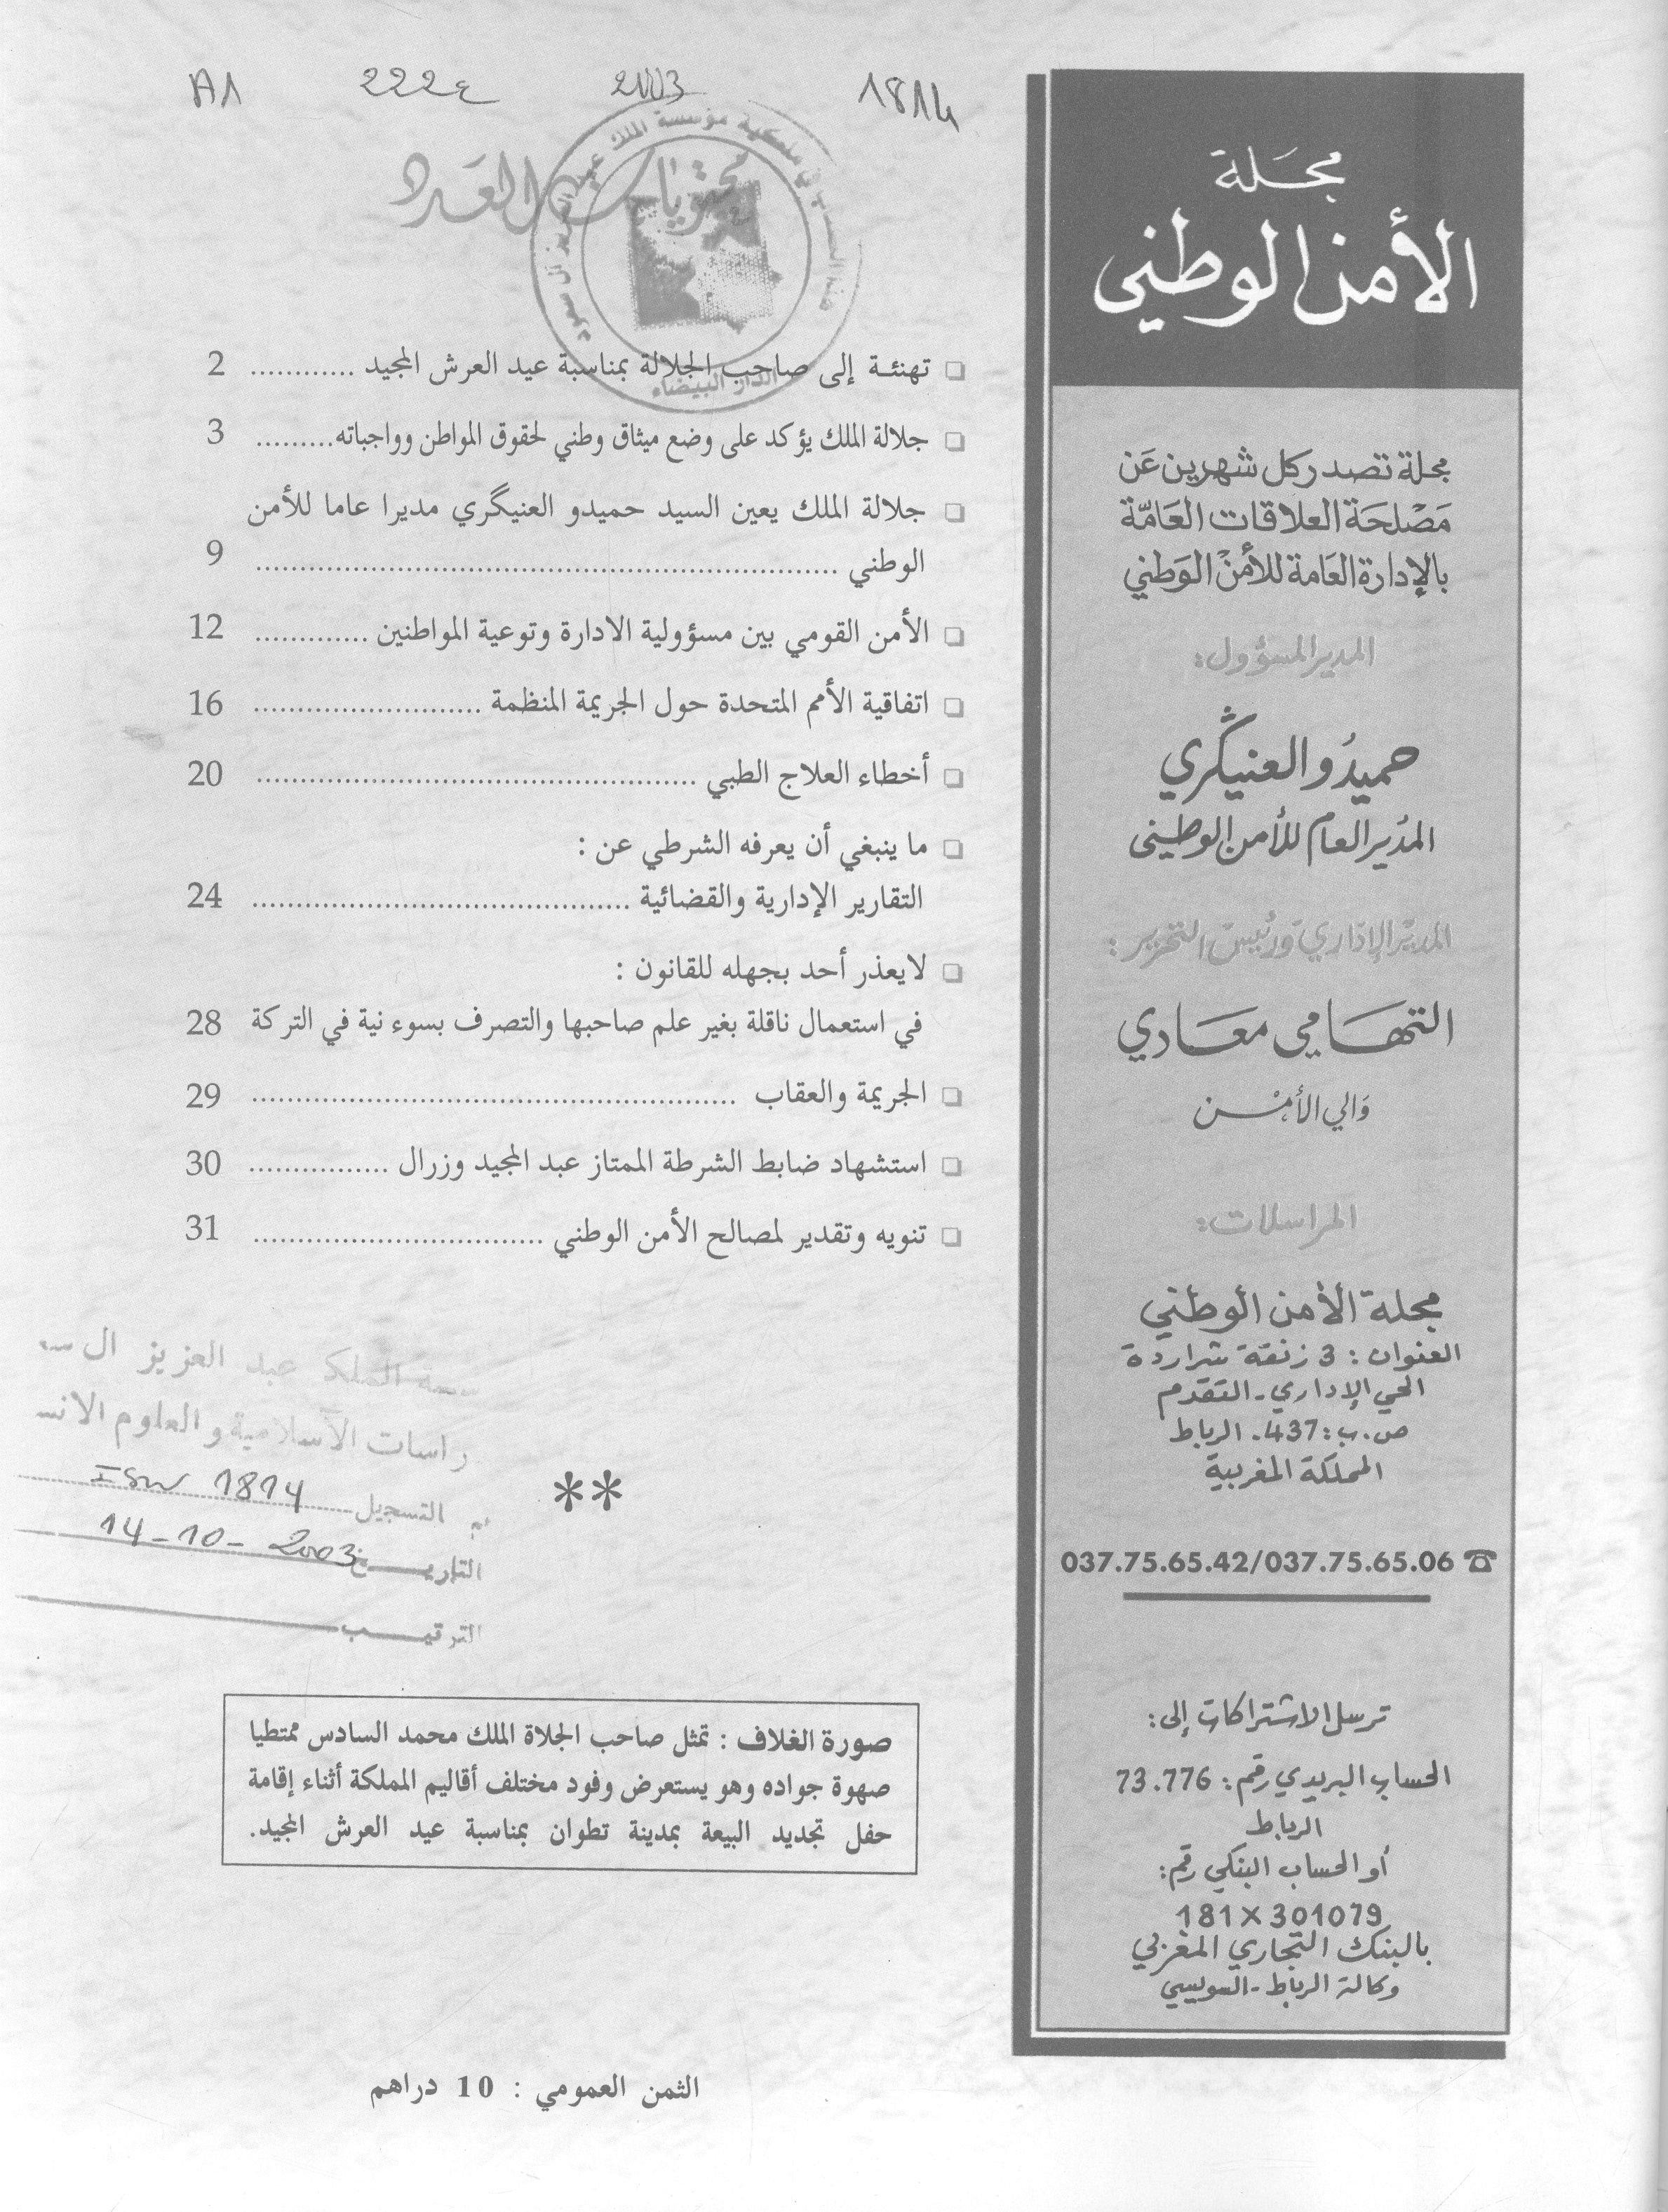 مجلة
الأمن الوطني
مجلة تصدر كل شهرين عن
مصلحة العلاقات العامة
بالإدارة العامة للأمن الوطني
المدير المسؤول:
حميدو العنيگري
المدير العام للأمن الوطني
المدير الإداري ورئيس التحرير:
التهامي معادي
والي الأمن
المراسلات:
مجلة الأمن الوطني
العنوان: 3 زنقة شراردة
الحي الإداري - التقدم
ص.ب: 437. الرباط
المملكة المغربية
☎ 037.75.65.42/037.75.65.06
ترسل الاشتراكات إلى:
الحساب البريدي رقم: 73.776
الرباط
أو الحساب البنكي رقم:
181X301079
بالبنك التجاري المغربي
وكالة الرباط - السويسي
A1 2003 1814
محتويات العدد
مؤسسة الملك عبد العزيز آل سعود
الدار البيضاء
❑ تهنئة إلى صاحب الجلالة بمناسبة عيد العرش المجيد ............ 2
❑ جلالة الملك يؤكد على وضع ميثاق وطني لحقوق المواطن وواجباته......... 3
❑ جلالة الملك يعين السيد حميدو العنيگري مديرا عاما للأمن
الوطني ................................................................ 9
❑ الأمن القومي بين مسؤولية الادارة وتوعية المواطنين ............. 12
❑ اتفاقية الأمم المتحدة حول الجريمة المنظمة .......................... 16
❑ أخطاء العلاج الطبي .................................................. 20
❑ ما ينبغي أن يعرفه الشرطي عن :
التقارير الإدارية والقضائية ........................................... 24
❑ لايعذر أحد بجهله للقانون :
في استعمال ناقلة بغير علم صاحبها والتصرف بسوء نية في التركة 28
❑ الجريمة والعقاب ...................................................... 29
❑ استشهاد ضابط الشرطة الممتاز عبد المجيد وزرال ................ 30
❑ تنويه وتقدير لمصالح الأمن الوطني ................................. 31
سسة الملك عبد العزيز ال سـ
راسات الاسلامية والعلوم الانسـ
م التسجيل 1814
التاريـــخ 14-10-2003
الترتيـــب
**
صورة الغلاف : تمثل صاحب الجلاة الملك محمد السادس ممتطيا
صهوة جواده وهو يستعرض وفود مختلف أقاليم المملكة أثناء إقامة
حفل تجديد البيعة بمدينة تطوان بمناسبة عيد العرش المجيد.
الثمن العمومي : 10 دراهم